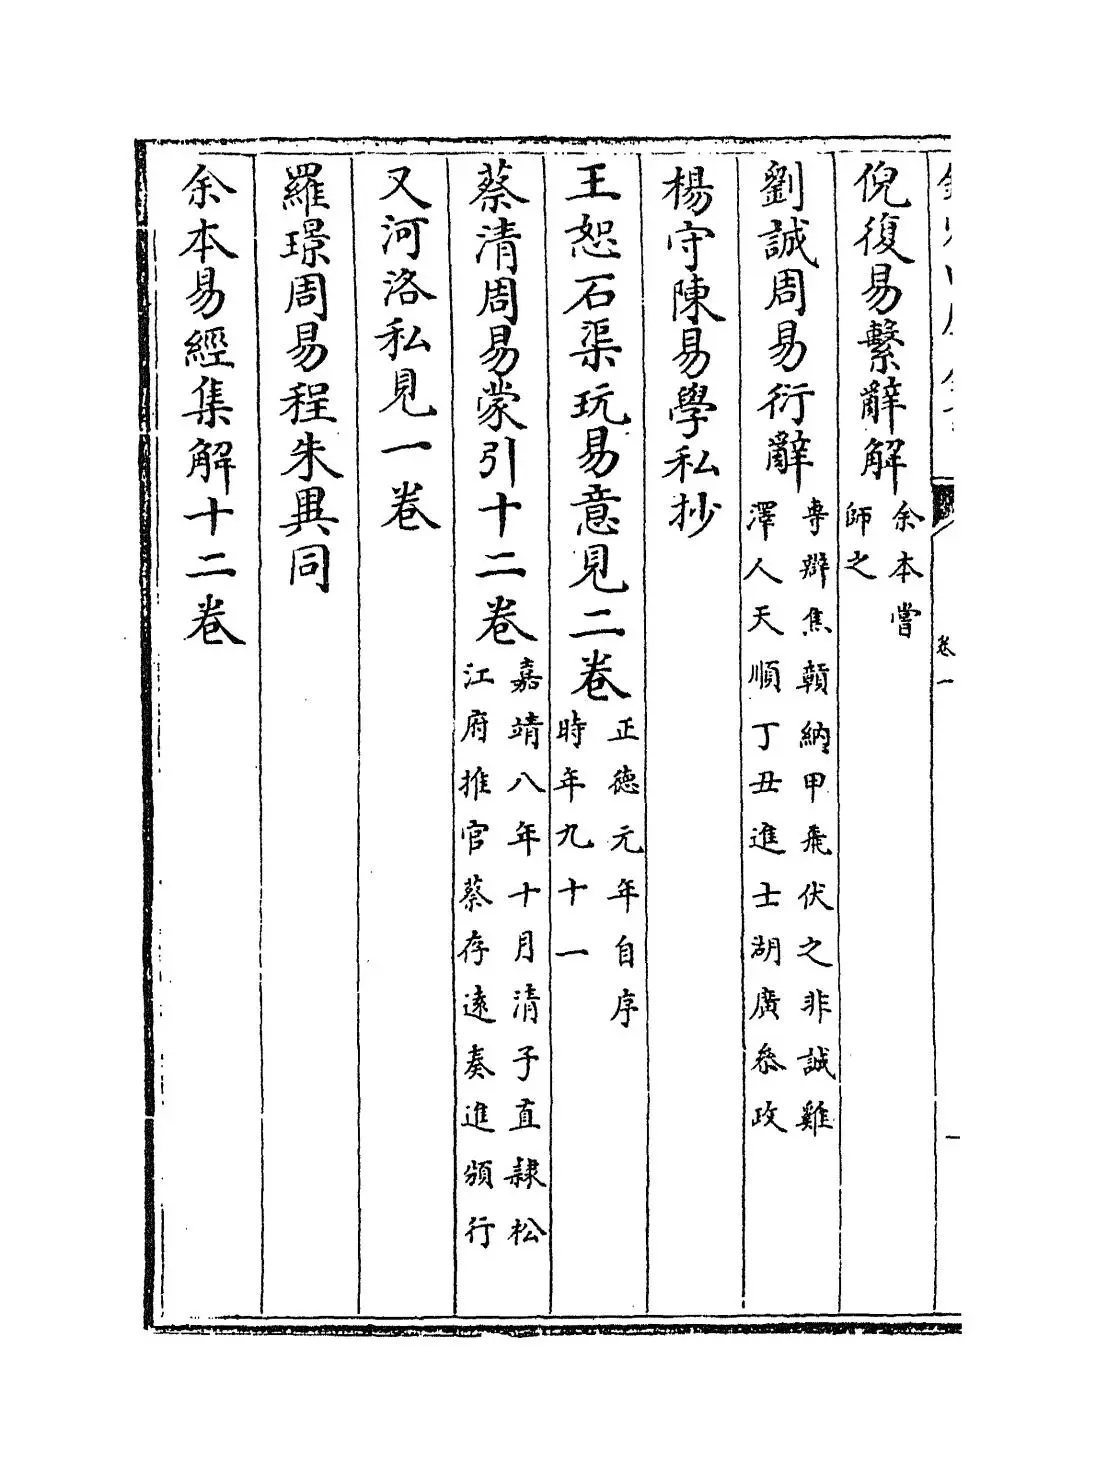 卷一
倪復易繫辭解余本嘗師之
劉誠周易衍辭專辯焦贛納甲飛伏之非誠雞澤人天順丁丑進士湖廣叅政
楊守陳易學私抄
王恕石渠玩易意見二卷正德元年自序時年九十一
蔡清周易蒙引十二卷嘉靖八年十月清子直隸松江府推官蔡存遠奏進頒行
又河洛私見一卷
羅璟周易程朱異同
余本易經集解十二卷